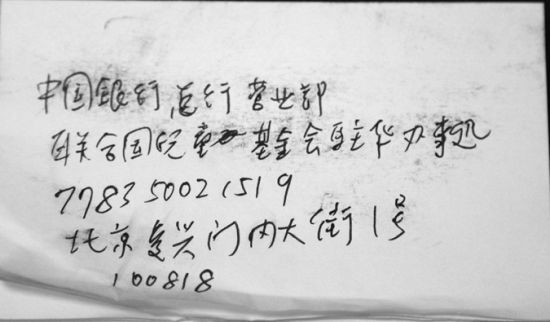 中国银行总行营业部
联合国儿童基金会驻华办事处
778350021519
北京复兴门内大街1号
100818